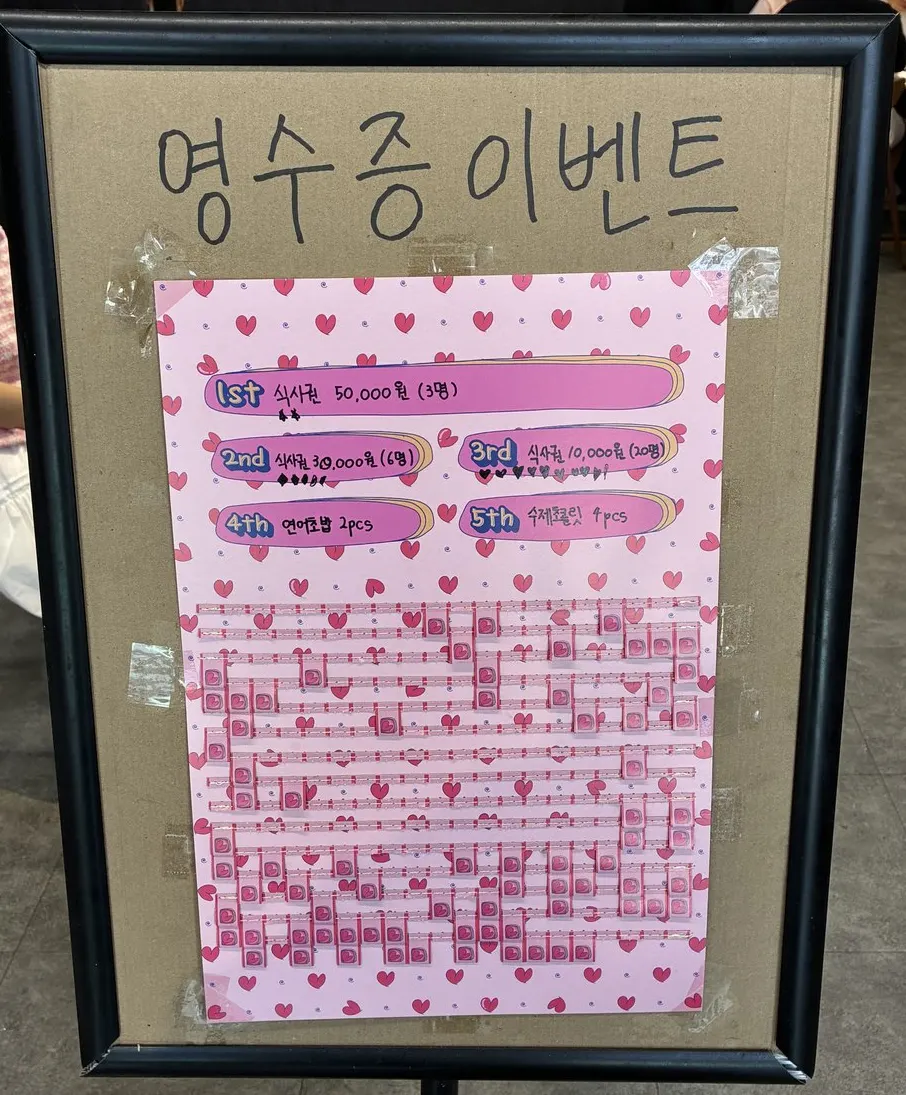 영수증 이벤트
1st 식사권 50,000원 (3명)
2nd 식사권 30,000원 (6명)
3rd 식사권 10,000원 (20명)
4th 연어초밥 2pcs
5th 수제초콜릿 4pcs